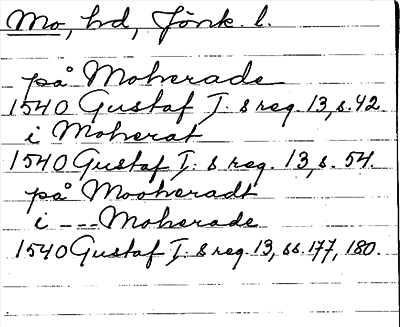 Mo, hd, Jönk. l.
på Moherade
1540 Gustaf I. s reg. 13, s. 42
i Moherat
1540 Gustaf I. s reg. 13, s. 54.
på Mooheradt
i --- Moherade
1540 Gustaf I. s reg. 13, ss. 177, 180.